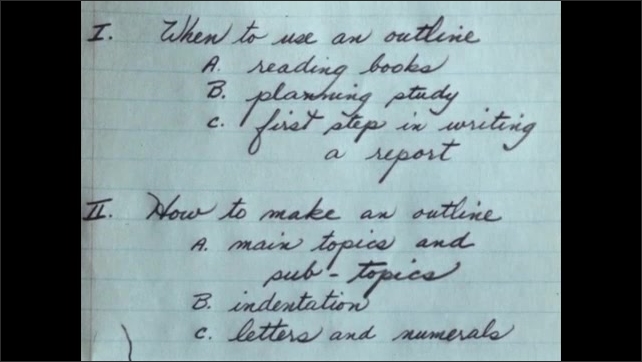 I. When to use an outline
A. reading books
B. planning study
C. first step in writing
a report
II. How to make an outline
A. main topics and
sub-topics
B. indentation
C. letters and numerals